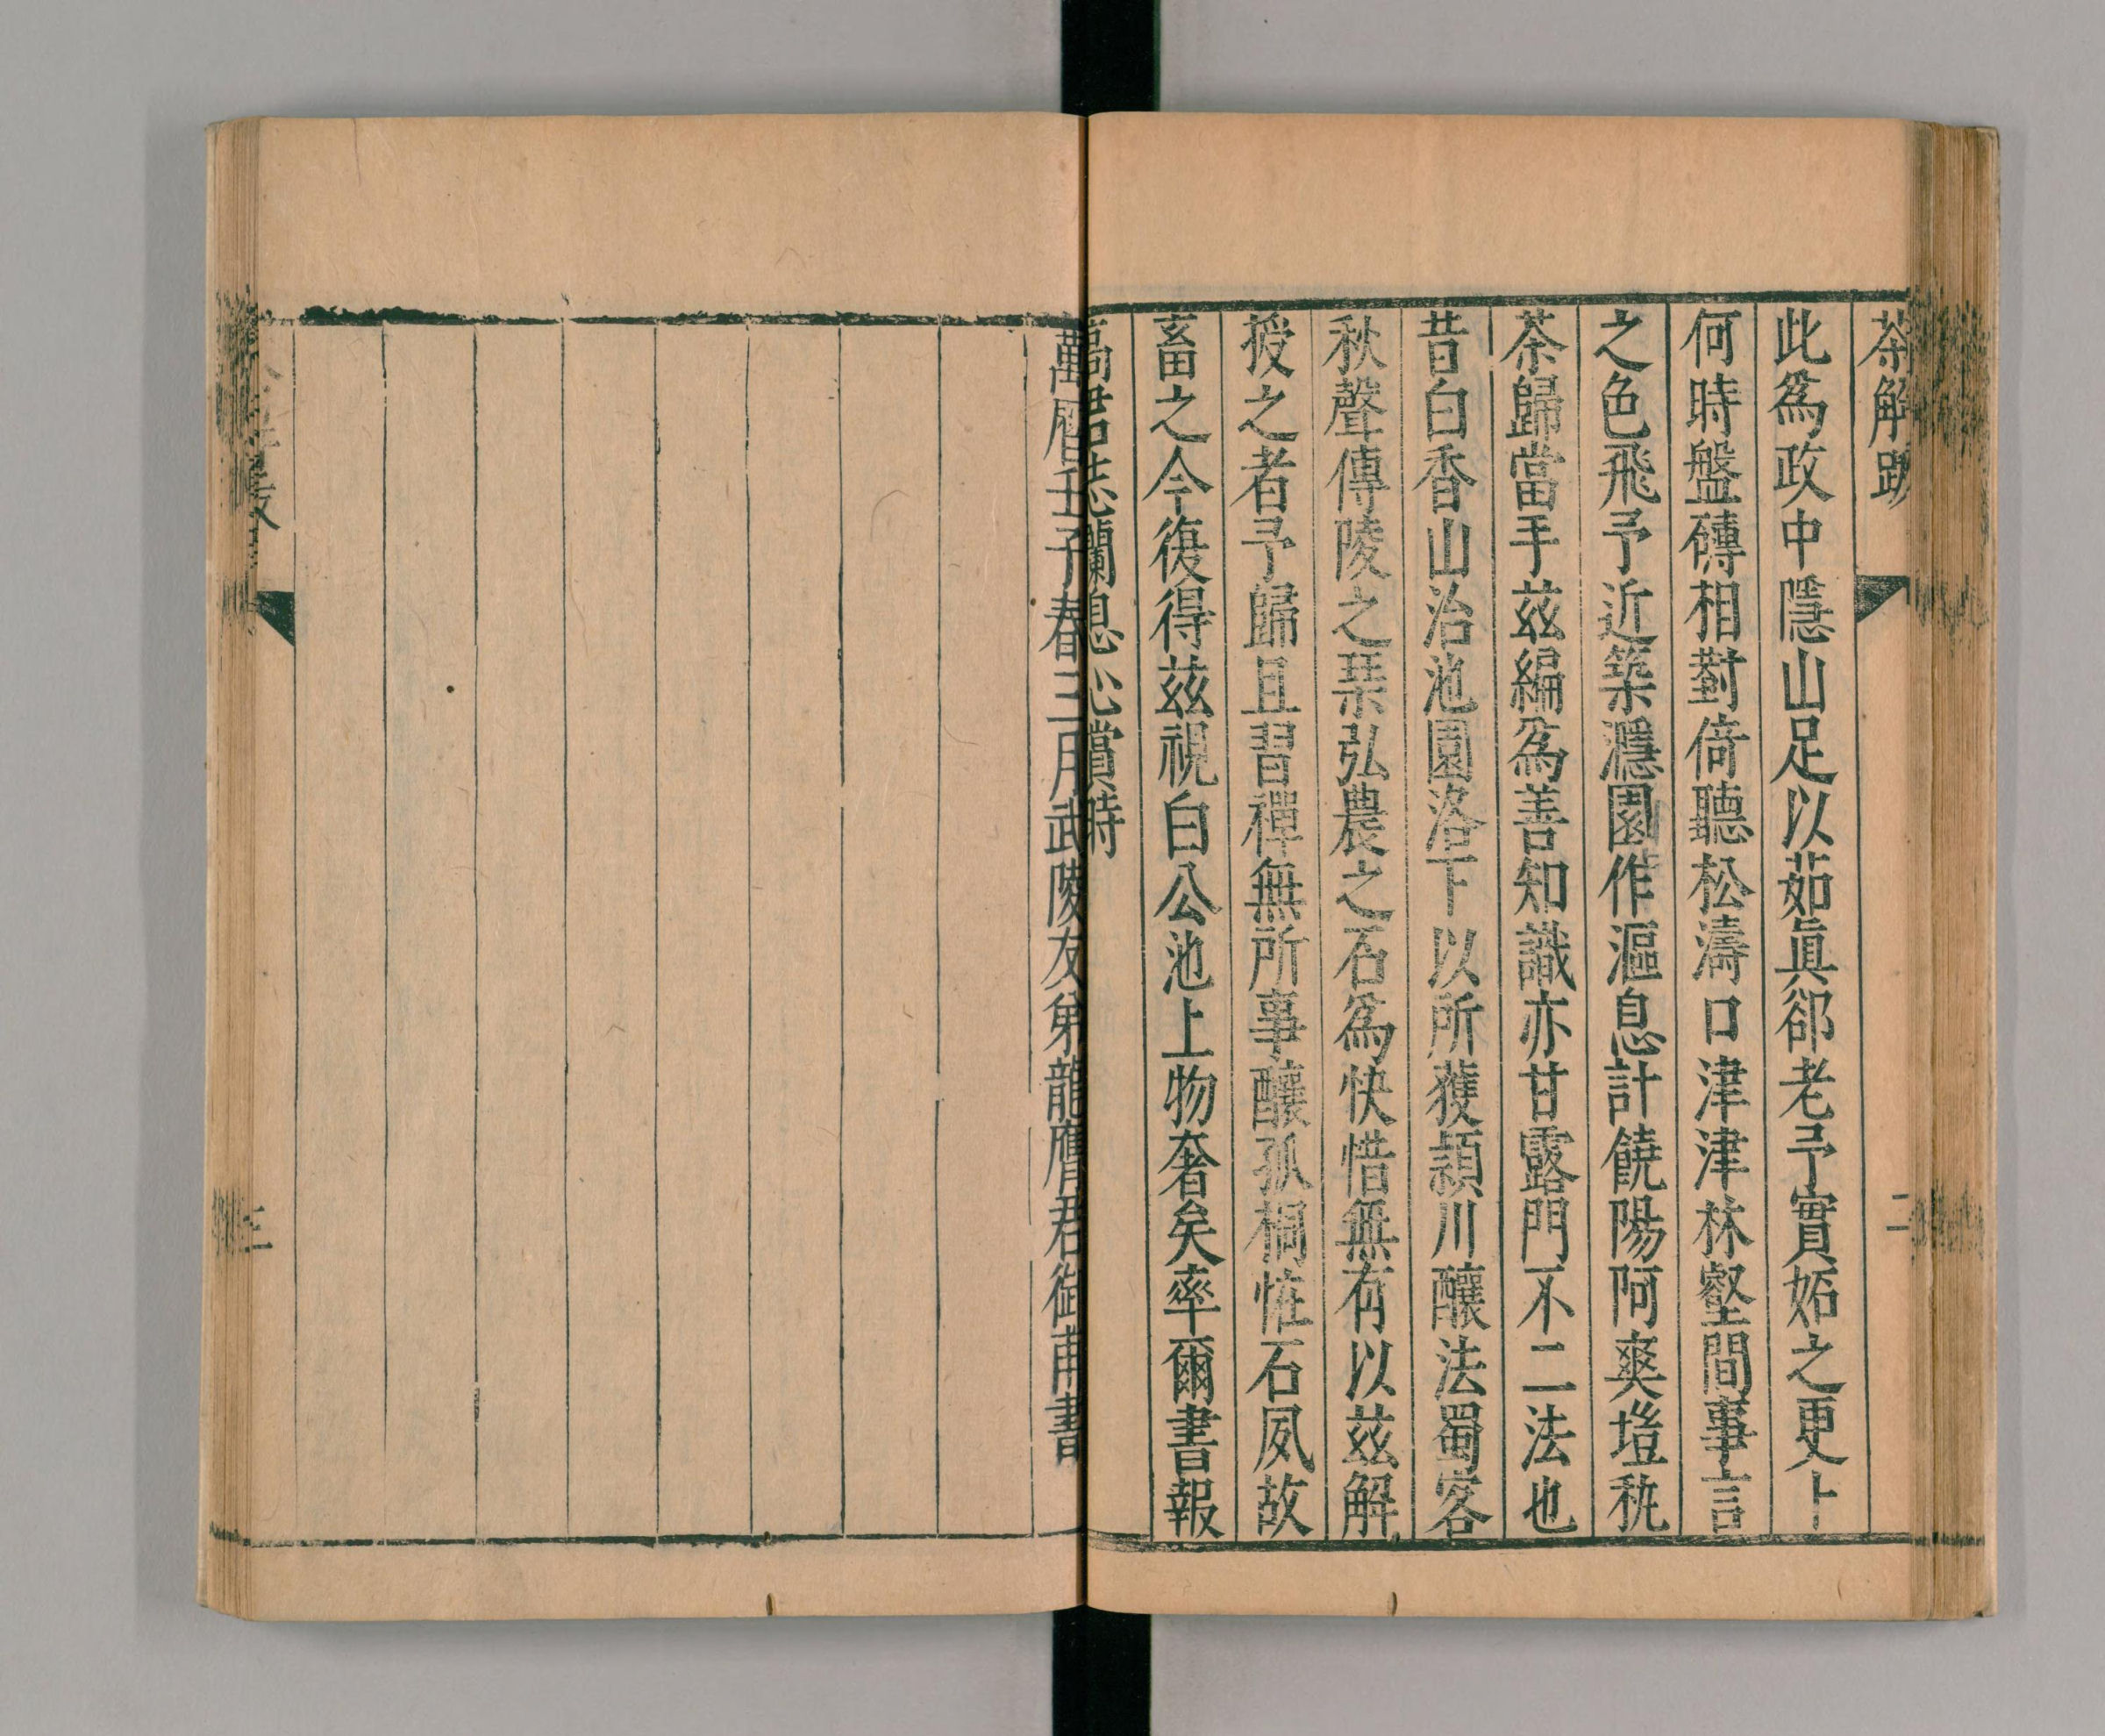 茶解跋
二
此爲政中隱山足以茹眞却老予實妬之更卜
何時盤礴相對倚聽松濤口津津林壑間事言
之色飛予近築𤅊園作漚息計饒陽阿爽塏秇
茶歸當手兹編爲善知識亦甘露門不二法也
昔白香山治池園洛下以所獲潁川釀法蜀客
秋聲傳陵之琹弘農之石爲快惜無有以兹解
授之者予歸且習禪無所事釀孤桐恠石夙故
畜之今復得兹視白公池上物奢矣率爾書報
高君志瀾息心賞時
萬曆壬子春三月武陵友弟龍膺君御甫書
三